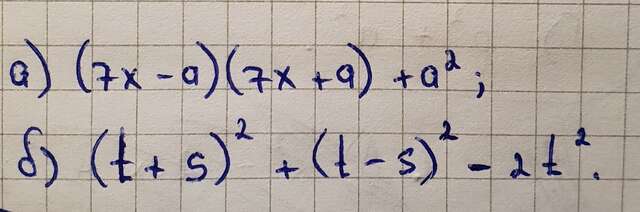 а) (7x - a)(7x + a) + a²;
б) (t + s)² + (t - s)² - 2t².